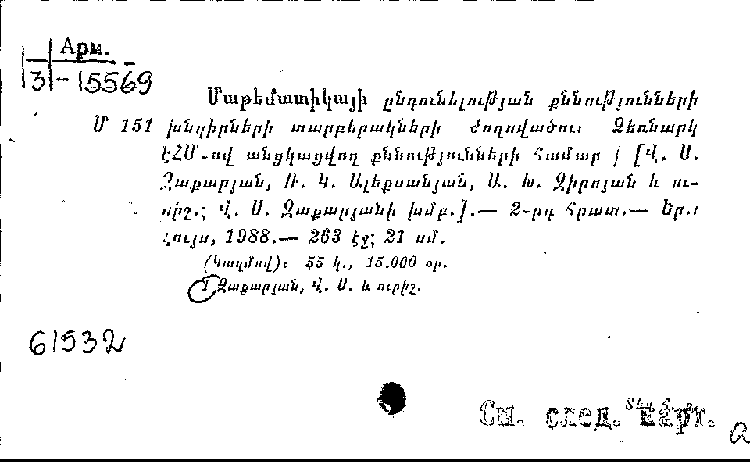 Арм.
3-15569
Մաթեմատիկայի ընդունելության քննությունների
Մ 151 խնդիրների տարբերակների ժողովածու: Ձեռնարկ
ԷՀՄ-ով անցկացվող քննությունների համար / [Վ. Ս.
Զաքարյան, Ռ. Կ. Ալեքսանյան, Ա. Խ. Ջիլոյան և ու-
րիշ.; Վ. Ս. Զաքարյանի խմբ.].— 2-րդ հրատ.— Եր.:
Լույս, 1988.— 263 էջ; 21 սմ.
(Կազմով): 55 կ., 15.000 օր.
I Զաքարյան, Վ. Ս. և ուրիշ.
61532
См. след. карт.